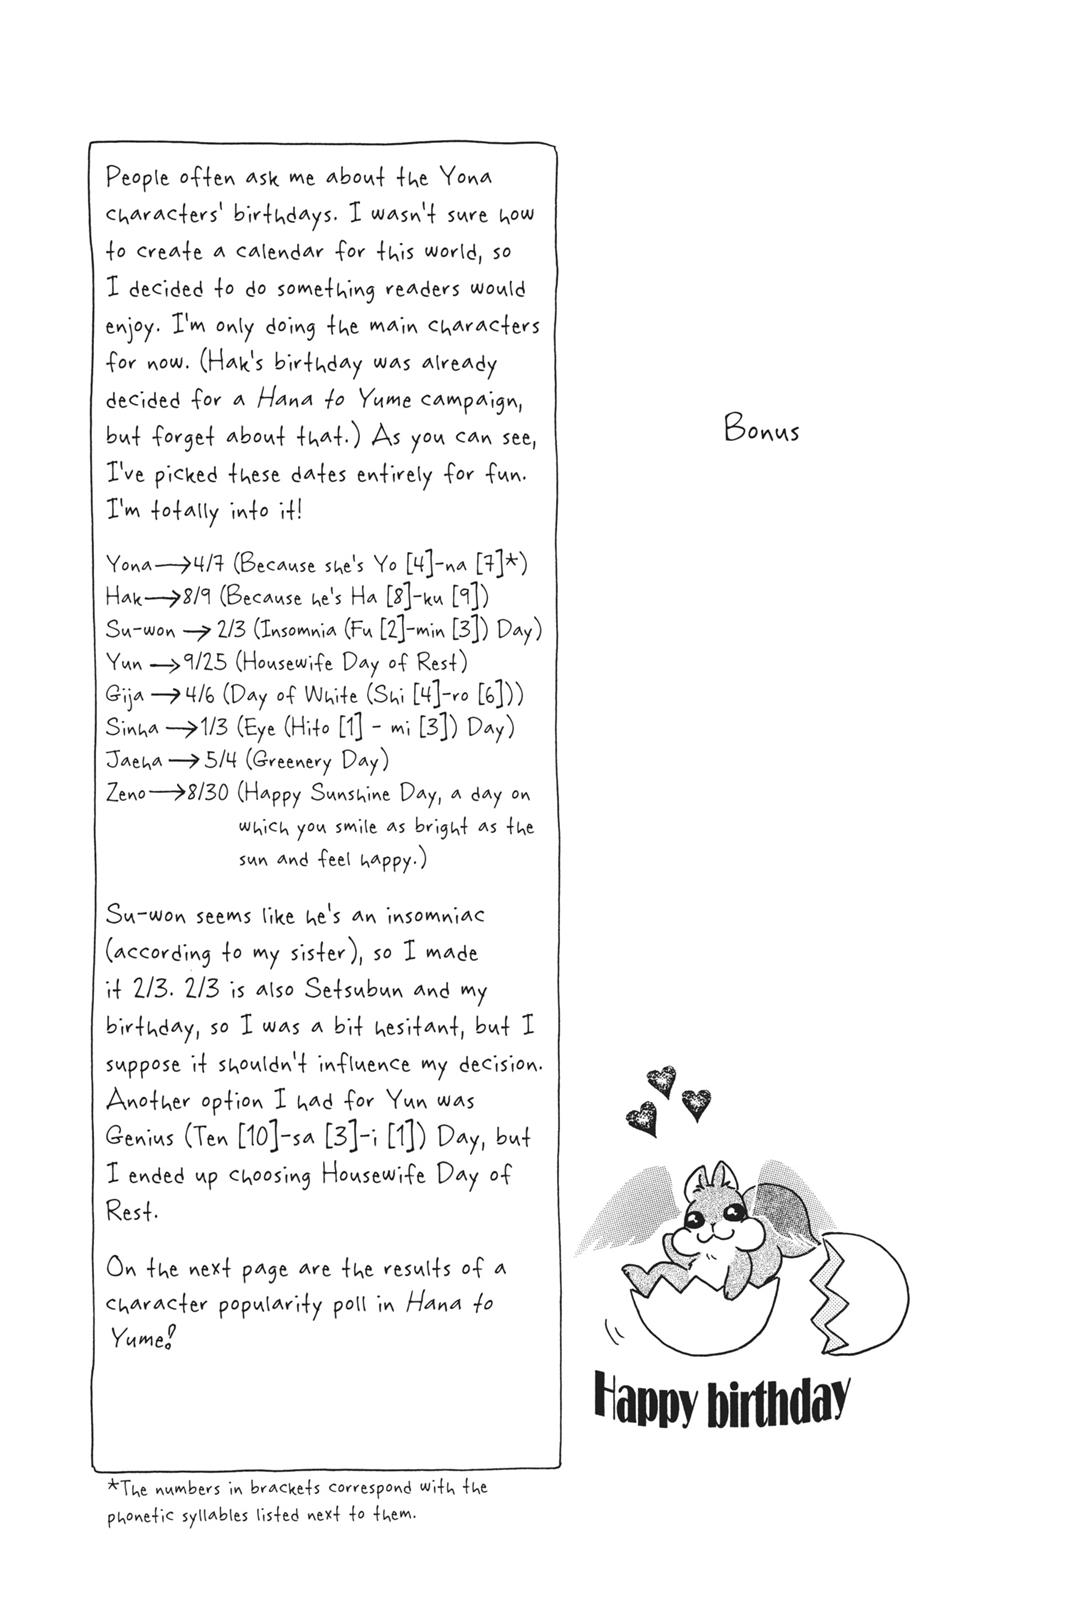 People often ask me about the Yona
characters' birthdays. I wasn't sure how
to create a calendar for this world, so
I decided to do something readers would
enjoy. I'm only doing the main characters
for now. (Hak's birthday was already
decided for a Hana to Yume campaign,
but forget about that.) As you can see,
I've picked these dates entirely for fun.
I'm totally into it!
Yona→4/7 (Because she's Yo [4]-na [7]*)
Hak→8/9 (Because he's Ha [8]-ku [9])
Su-won → 2/3 (Insomnia (Fu [2]-min [3]) Day)
Yun →9/25 (Housewife Day of Rest)
Gija →4/6 (Day of White (Shi [4]-ro [6]))
Sinha →1/3 (Eye (Hito [1] - mi [3]) Day)
Jaeha → 5/4 (Greenery Day)
Zeno→8/30 (Happy Sunshine Day, a day on
which you smile as bright as the
sun and feel happy.)
Su-won seems like he's an insomniac
(according to my sister), so I made
it 2/3. 2/3 is also Setsubun and my
birthday, so I was a bit hesitant, but I
suppose it shouldn't influence my decision.
Another option I had for Yun was
Genius (Ten [10]-sa [3]-i [1]) Day, but
I ended up choosing Housewife Day of
Rest.
On the next page are the results of a
character popularity poll in Hana to
Yume!
*The numbers in brackets correspond with the
phonetic syllables listed next to them.
Bonus
Happy birthday